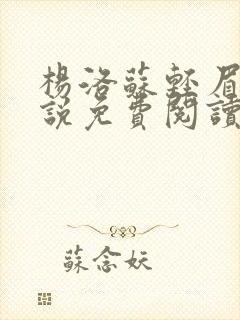 楊洛蘇輕眉
說免費閱讀
蘇念妖